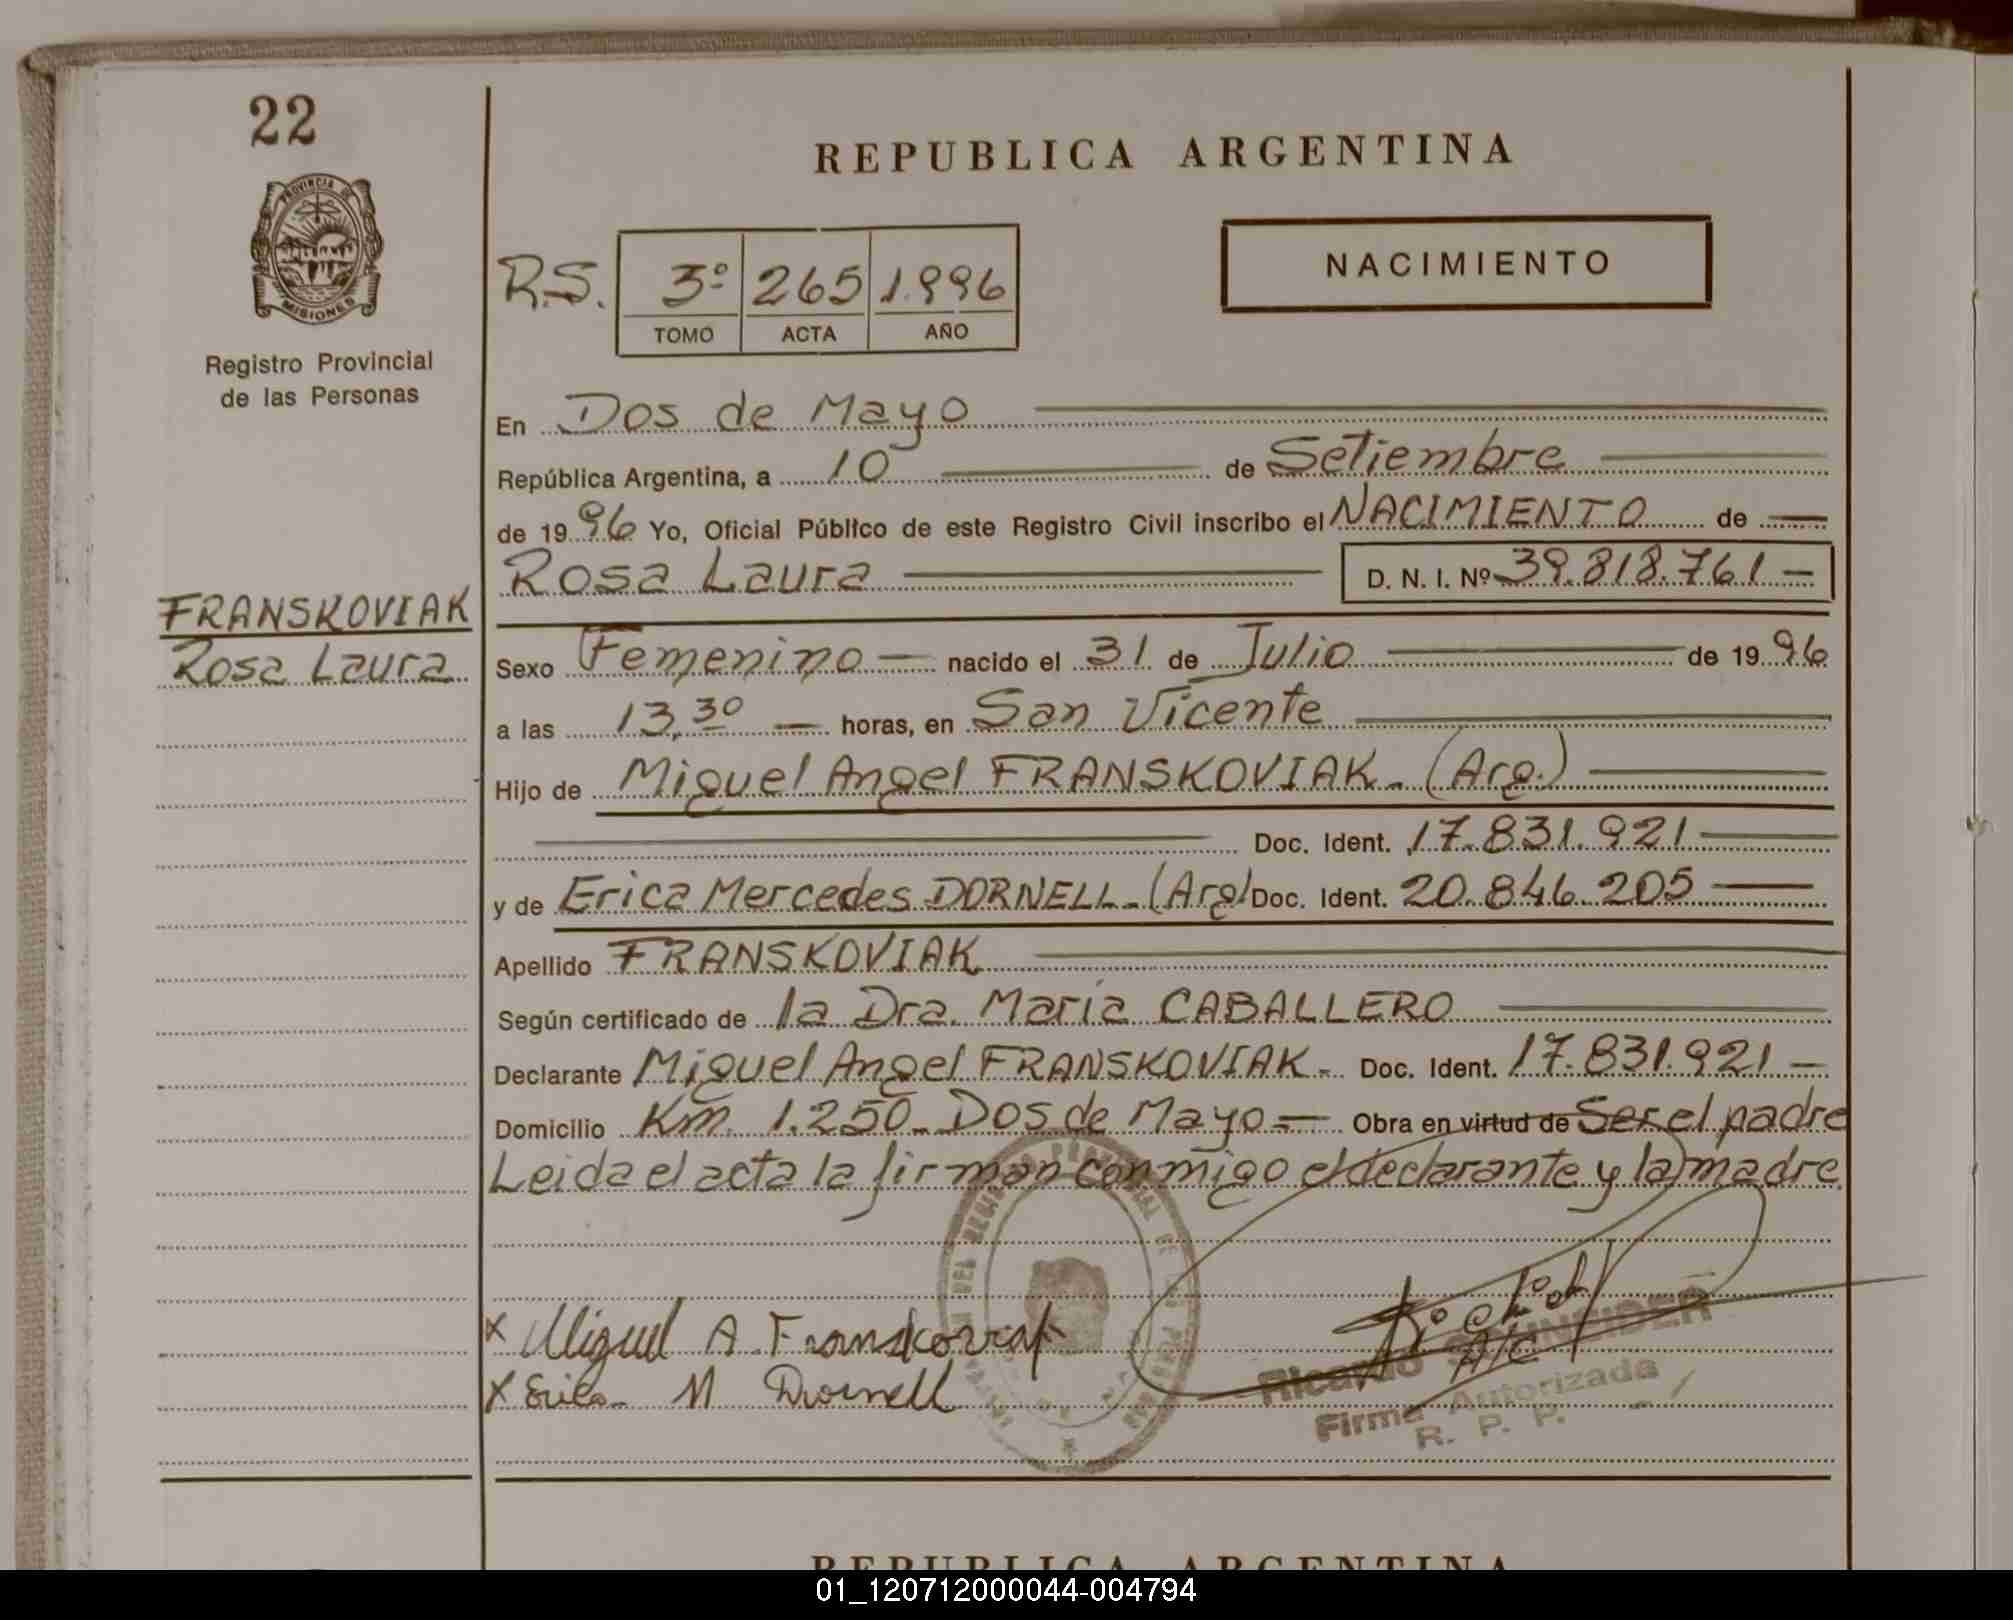 22
REPUBLICA ARGENTINA
PROVINCIA DE
MISIONES
NACIMIENTO
R.S. 3º 265 1.996
TOMO ACTA AÑO
Registro Provincial
de las Personas
En Dos de Mayo
República Argentina, a 10 de Setiembre
de 19 96 Yo, Oficial Público de este Registro Civil inscribo el NACIMIENTO de
Rosa Laura D. N. I. Nº 39.818.761 —
FRANSKOVIAK
Rosa Laura
Sexo Femenino — nacido el 31 de Julio de 19 96
a las 13,30 — horas, en San Vicente
Hijo de Miguel Angel FRANSKOVIAK.- (Arg.)
Doc. Ident. 17.831.921
y de Erica Mercedes DORNELL.- (Arg) Doc. Ident. 20.846.205
Apellido FRANSKOVIAK
Según certificado de la Dra. María CABALLERO
Declarante Miguel Angel FRANSKOVIAK.- Doc. Ident. 17.831.921 —
Domicilio Km. 1.250.- Dos de Mayo.— Obra en virtud de Ser el padre
Leida el acta la firman conmigo el declarante y la madre.
x Miguel A. Franskoviak
x Erica M Dornell
Ricardo SCHNEIDER
A/C
Firma Autorizada
R. P. P.
REPUBLICA ARGENTINA
01_120712000044-004794